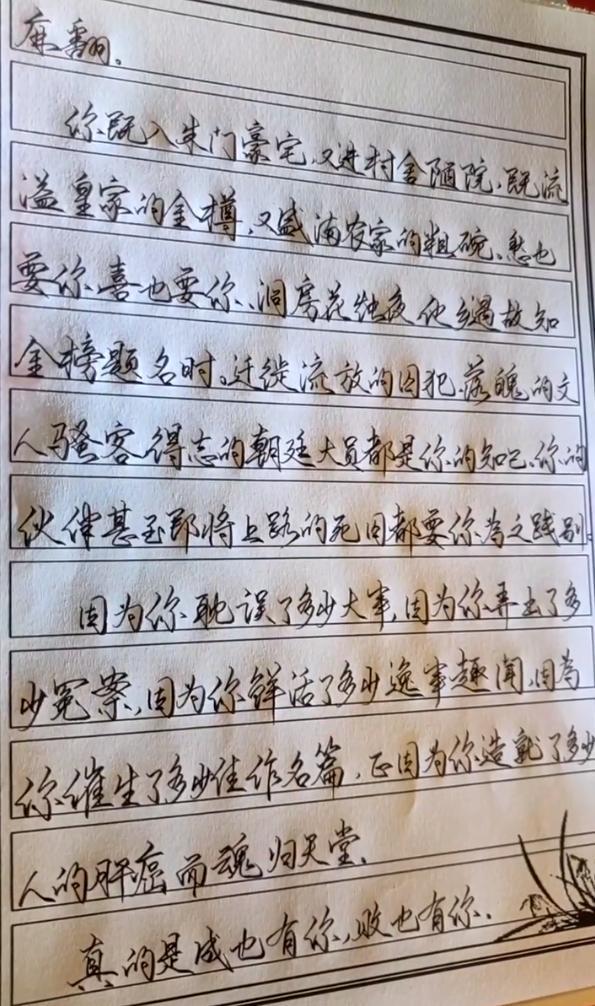 麻翻。
你既入朱门豪宅,又进村舍陋院,既流
溢皇家的金樽,又盛满农家的粗碗、愁也
要你、喜也要你、洞房花烛夜他乡遇故知
金榜题名时。迁徙流放的囚犯、落魄的文
人骚客得志的朝廷大员都是你的知己、你的
伙伴甚至即将上路的死囚都要你为之践别。
因为你耽误了多少大事,因为你弄出了多
少冤案,因为你鲜活了多少逸事趣闻,因为
你催生了多少佳作名篇,正因为你造就了多少
人的肝癌而魂归天堂、
真的是成也有你,败也有你.